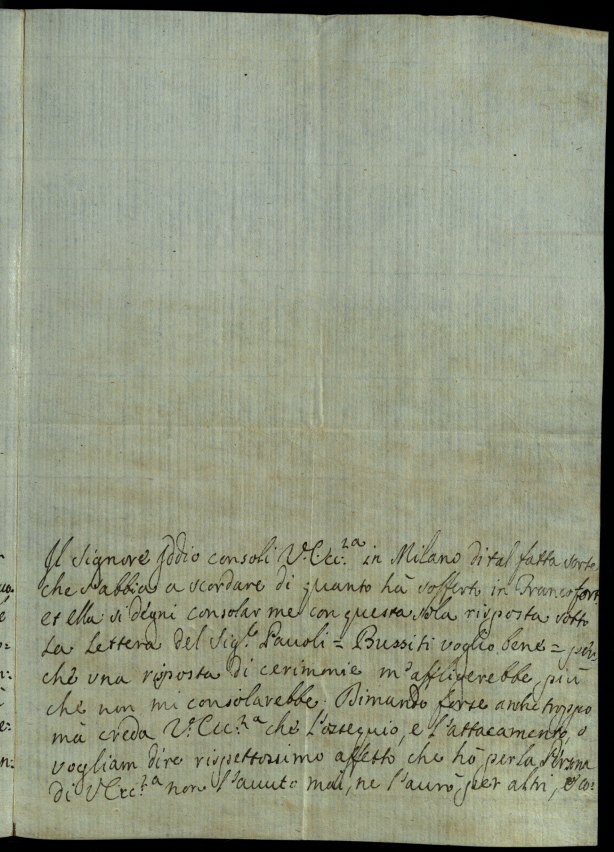 Il Signore Iddio consoli V. Ecc.za in Milano di tal fatta sorte
che s'abbia a scordare di quanto hà sofferto in Francofort,
et ella si degni consolar me con questa sola risposta sotto
la Lettera del Sig.re Pauoli = Bussiti voglio bene = per=
chè una risposta di cerimonie m'affligerebbe più
che non mi consolarebbe. Dimando forse anche troppo
mà creda V. Ecc.za che l'ossequio, e l'attacamento, o
vogliam dire rispettosissimo affetto che hò per la
di V Ecc.za non l'auuto mai, ne l'aurò per altri, e co=